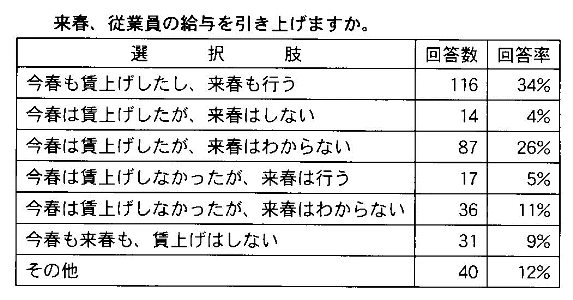 来春、従業員の給与を引き上げますか。
選択肢 回答数 回答率
今春も賃上げしたし、来春も行う 116 34%
今春は賃上げしたが、来春はしない 14 4%
今春は賃上げしたが、来春はわからない 87 26%
今春は賃上げしなかったが、来春は行う 17 5%
今春は賃上げしなかったが、来春はわからない 36 11%
今春も来春も、賃上げはしない 31 9%
その他 40 12%